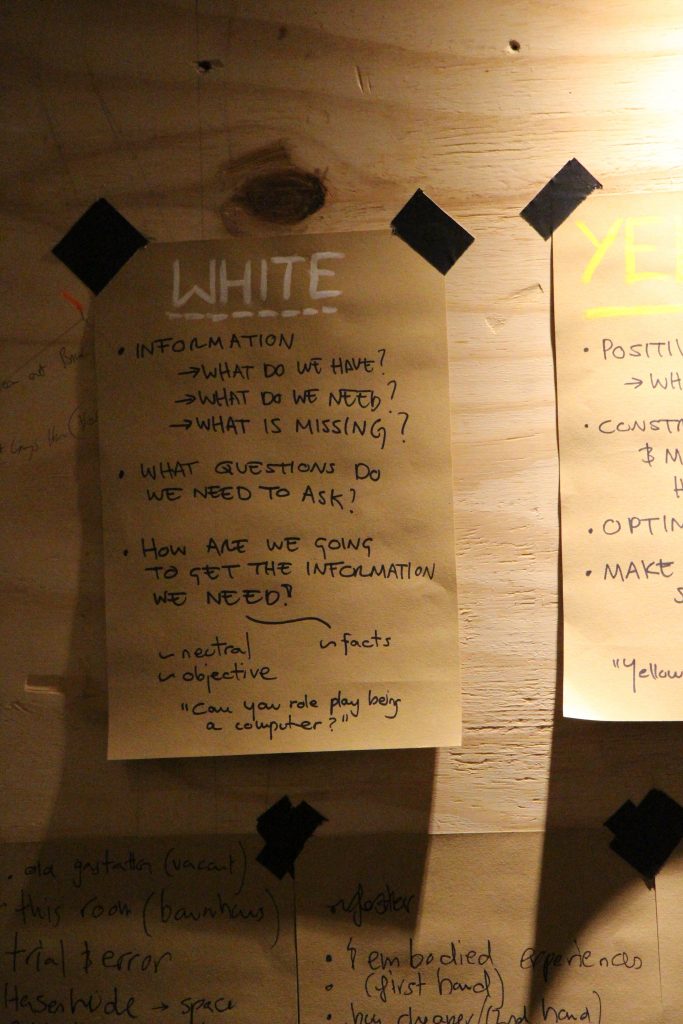 WHITE
• INFORMATION
→ WHAT DO WE HAVE?
→ WHAT DO WE NEED?
→ WHAT IS MISSING?
• WHAT QUESTIONS DO
WE NEED TO ASK?
• HOW ARE WE GOING
TO GET THE INFORMATION
WE NEED?
~ neutral
~ facts
~ objective
"Can you role play being
a computer?"
YE
• POSITIV
→ WH
• CONSTR
& M
H
• OPTIN
• MAKE
S
"Yellow
out
• old (vacant)
this room (bauhaus)
trial & error
Hasenheide → space
• embodied experiences
(first hand)
• buy cheaper/(2nd hand)